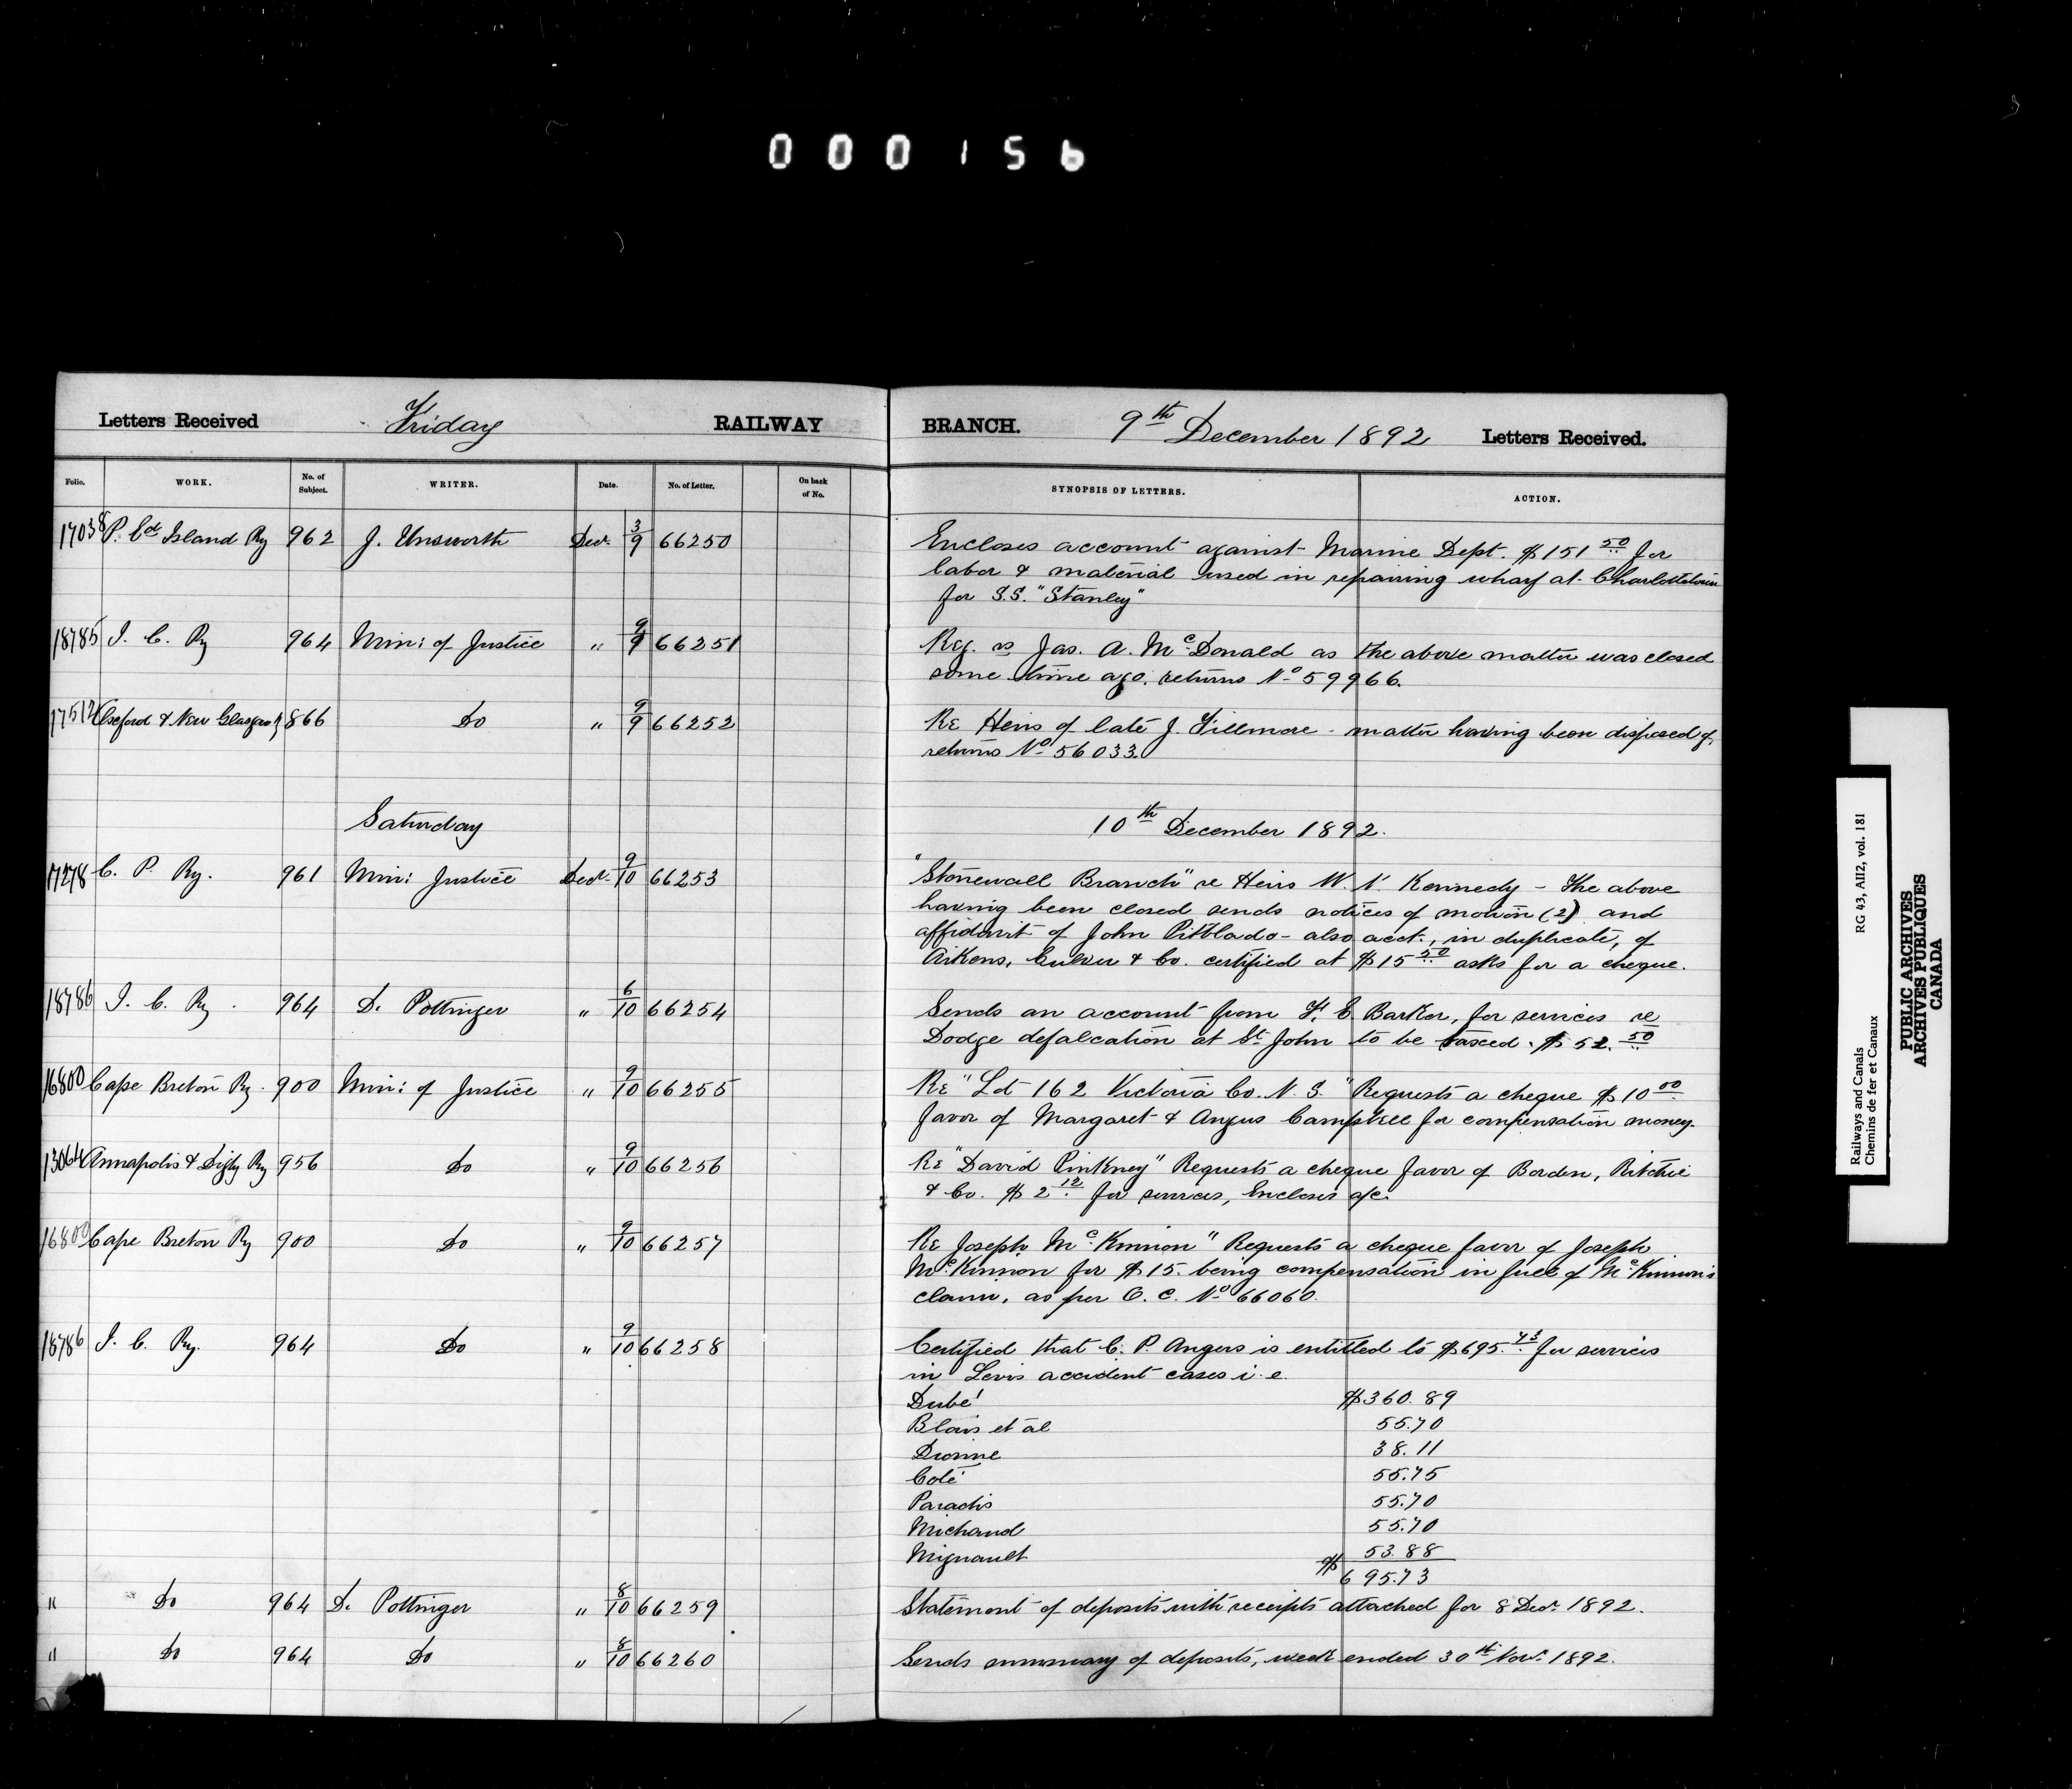 000156
Letters Received Friday RAILWAY BRANCH. 9th December 1892 Letters Received.
Folio. WORK. No. of Subject. WRITER. Date. No. of Letter. On back of No. SYNOPSIS OF LETTERS. ACTION.
17038 P. Ed Island Ry 962 J. Unsworth Decr. 3/9 66250 Encloses account against Marine Dept. $151 50 for
labor & material used in repairing wharf at Charlottetown
for S.S. "Stanley"
18785 I. C. Ry 964 Min: of Justice " 9/9 66251 Reg. vs Jas. A. McDonald as the above matter was closed
some time ago, returns No 59966.
17512 Oxford & New Glasgow Ry 866 Do " 9/9 66252 Re Heirs of late J. Fillmore - matter having been disposed of,
returns No 56033.
Saturday 10th December 1892.
17278 C. P. Ry. 961 Min: Justice Decr. 9/10 66253 "Stonewall Branch" re Heirs W. N. Kennedy - The above
having been closed sends notices of motion (2) and
affidavit of John Pitblado - also acct., in duplicate, of
Aikens, Culver & Co. certified at $15 50 asks for a cheque.
18786 I. C. Ry. 964 D. Pottinger " 6/10 66254 Sends an account from F. E Barker, for services re
Dodge defalcation at St John to be taxed. $52. 50
16800 Cape Breton Ry. 900 Min: of Justice " 9/10 66255 Re "Lot 162 Victoria Co. N. S." Requests a cheque $10 00
favor of Margaret & Angus Campbell for compensation money.
13064 Annapolis & Digby Ry 956 Do " 9/10 66256 Re "David Pinkney" Requests a cheque favor of Borden, Ritchie
& Co. $2 12 for services, Encloses a/c.
16800 Cape Breton Ry 900 Do " 9/10 66257 Re Joseph McKinnon" Requests a cheque favor of Joseph
McKinnon for $15. being compensation in full of McKinnon's
claim, as per O. C. No 66060.
18786 I. C. Ry. 964 Do " 9/10 66258 Certified that C. P. Angers is entitled to $695. 73 for services
in Levis accident cases i.e.
Dubé $360.89
Blais et al 55.70
Dionne 38.11
Coté 55.75
Paradis 55.70
Michaud 55.70
Mignault 53.88
$695.73
" Do 964 D. Pottinger " 8/10 66259 Statement of deposits with receipts attached for 8 Decr. 1892.
" Do 964 Do " 8/10 66260 Sends summary of deposits, week ended 30th Nov. 1892.
Railways and Canals RG 43, AII2, vol. 181
Chemins de fer et Canaux
PUBLIC ARCHIVES
ARCHIVES PUBLIQUES
CANADA